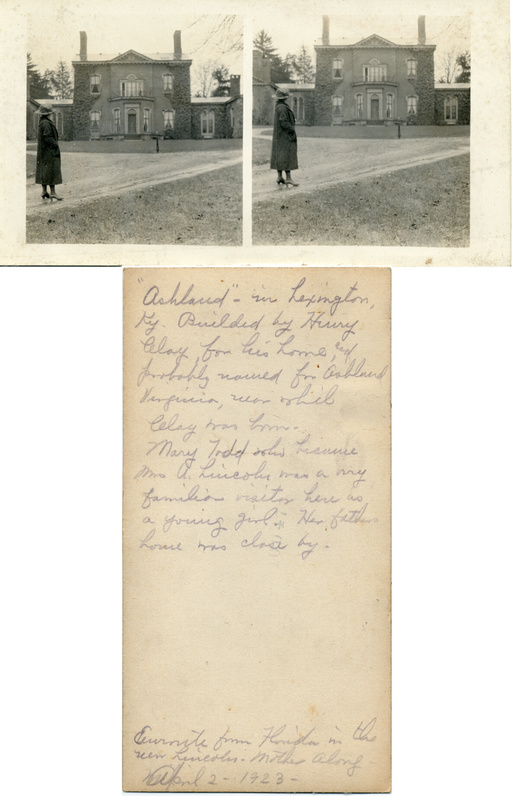 "Ashland" - in Lexington,
Ky. Builded by Henry
Clay, for his home, and
probably named for Ashland
Virginia, near which
Clay was born.
Mary Todd who became
Mrs A. Lincoln was a very
familiar visitor here as
a young girl. Her fathers
home was close by.
Enroute from Florida in the
new Lincoln - Mother Along -
April 2 - 1923 -